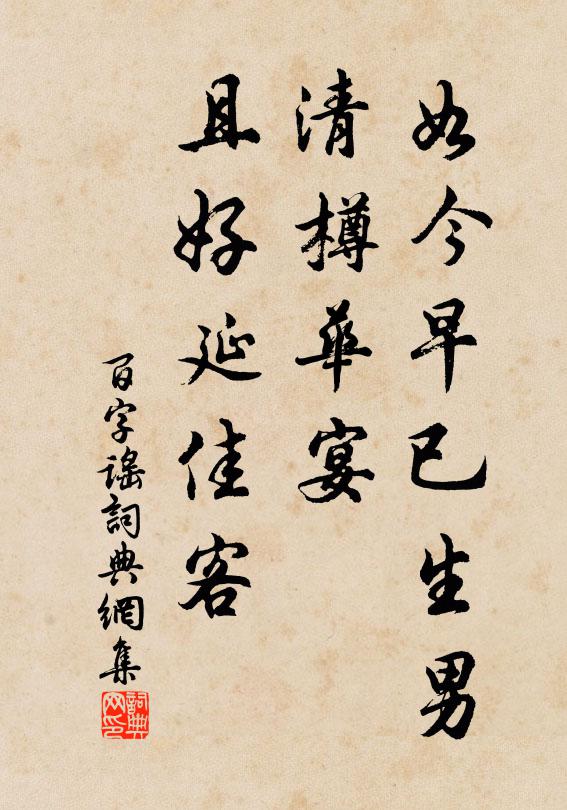 如今早已生男
清樽華宴
且好延佳客
百字謠詞典網集
詞典
网印